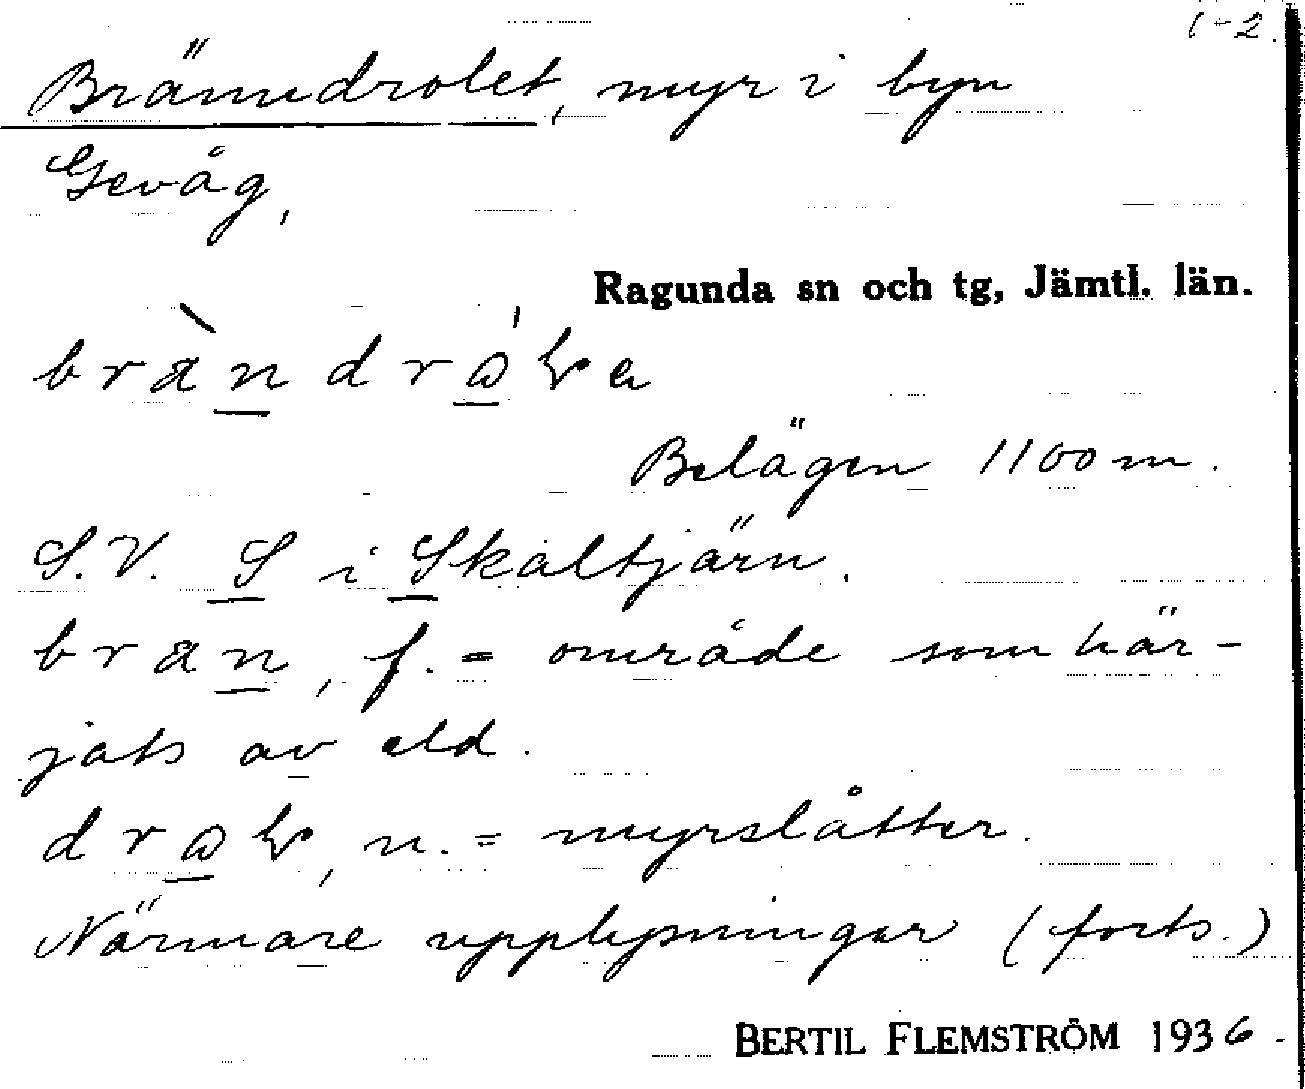 1-2.
Bränndrolet, myr i byn
Gevåg,
Ragunda sn och tg, Jämtl. län.
Belägen 1100 m.
S.V. S i Skaltjärn.
bran, f. = område som här-
jats av eld.
n. = myrslåtter.
Närmare upplysningar (forts.)
BERTIL FLEMSTRÖM 1936.